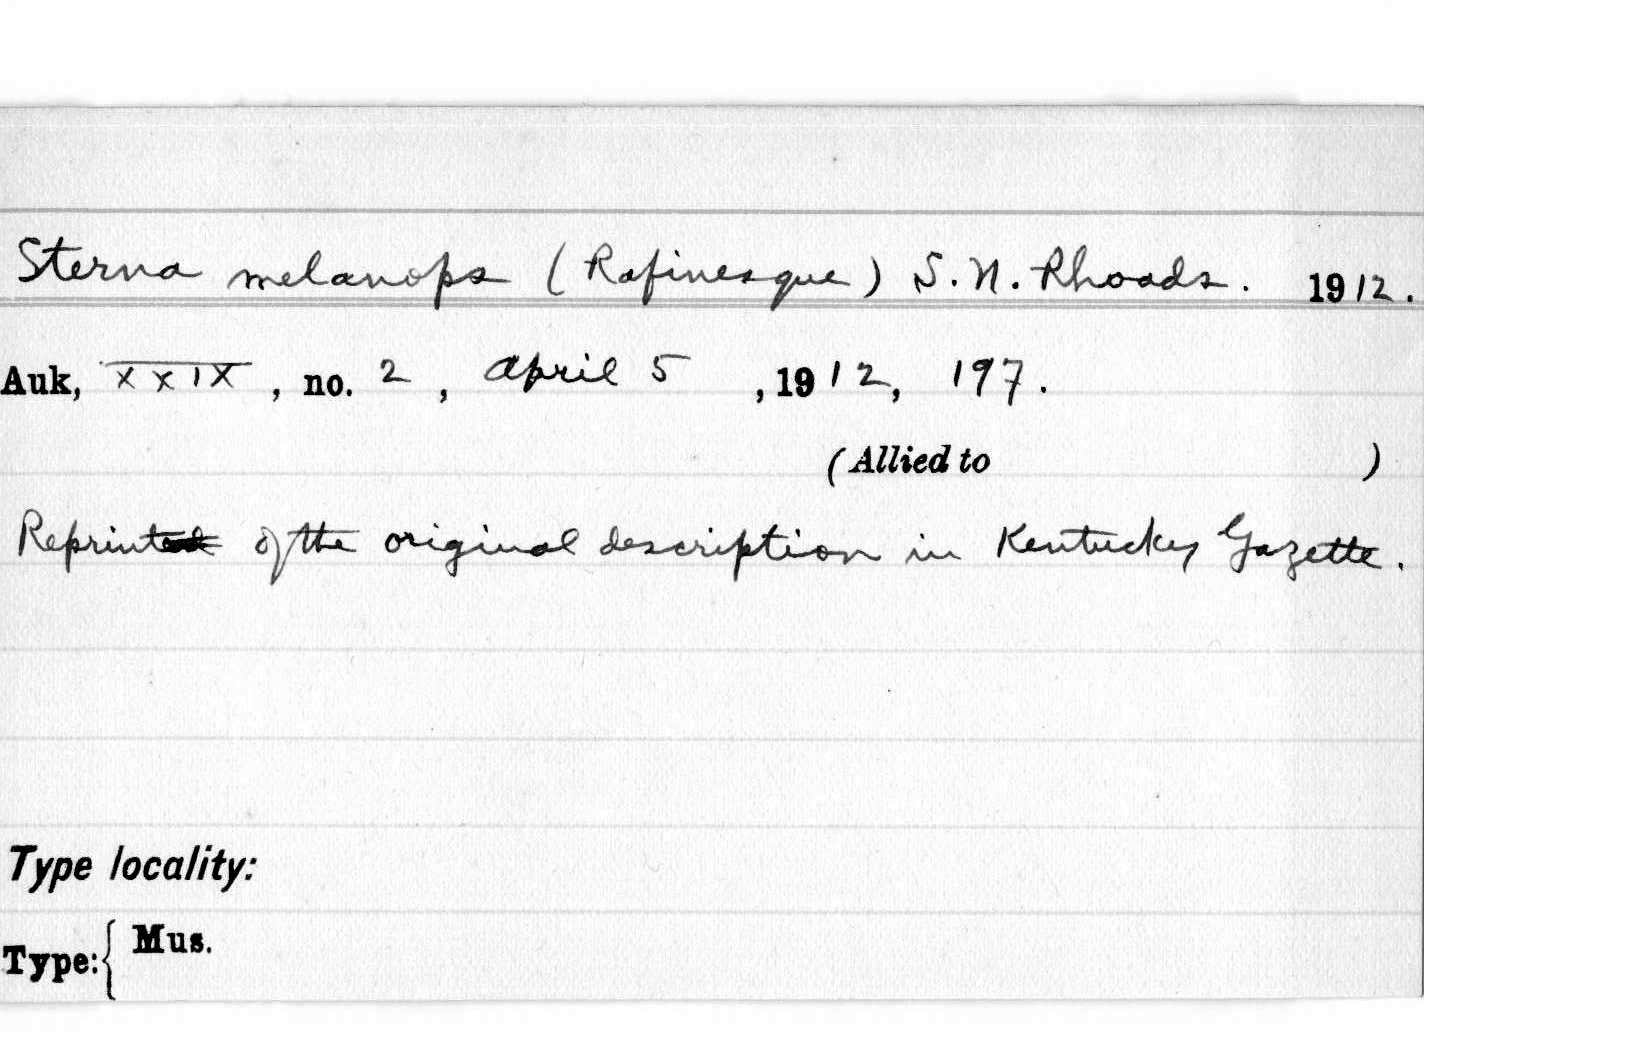 Sterna melanops (Rafinesque) S. N. Rhoads. 1912.
Auk, XXIX, no. 2, April 5, 1912, 197.
(Allied to )
Reprint of the original description in Kentucky Gazette.
Type locality:
Type: { Mus.